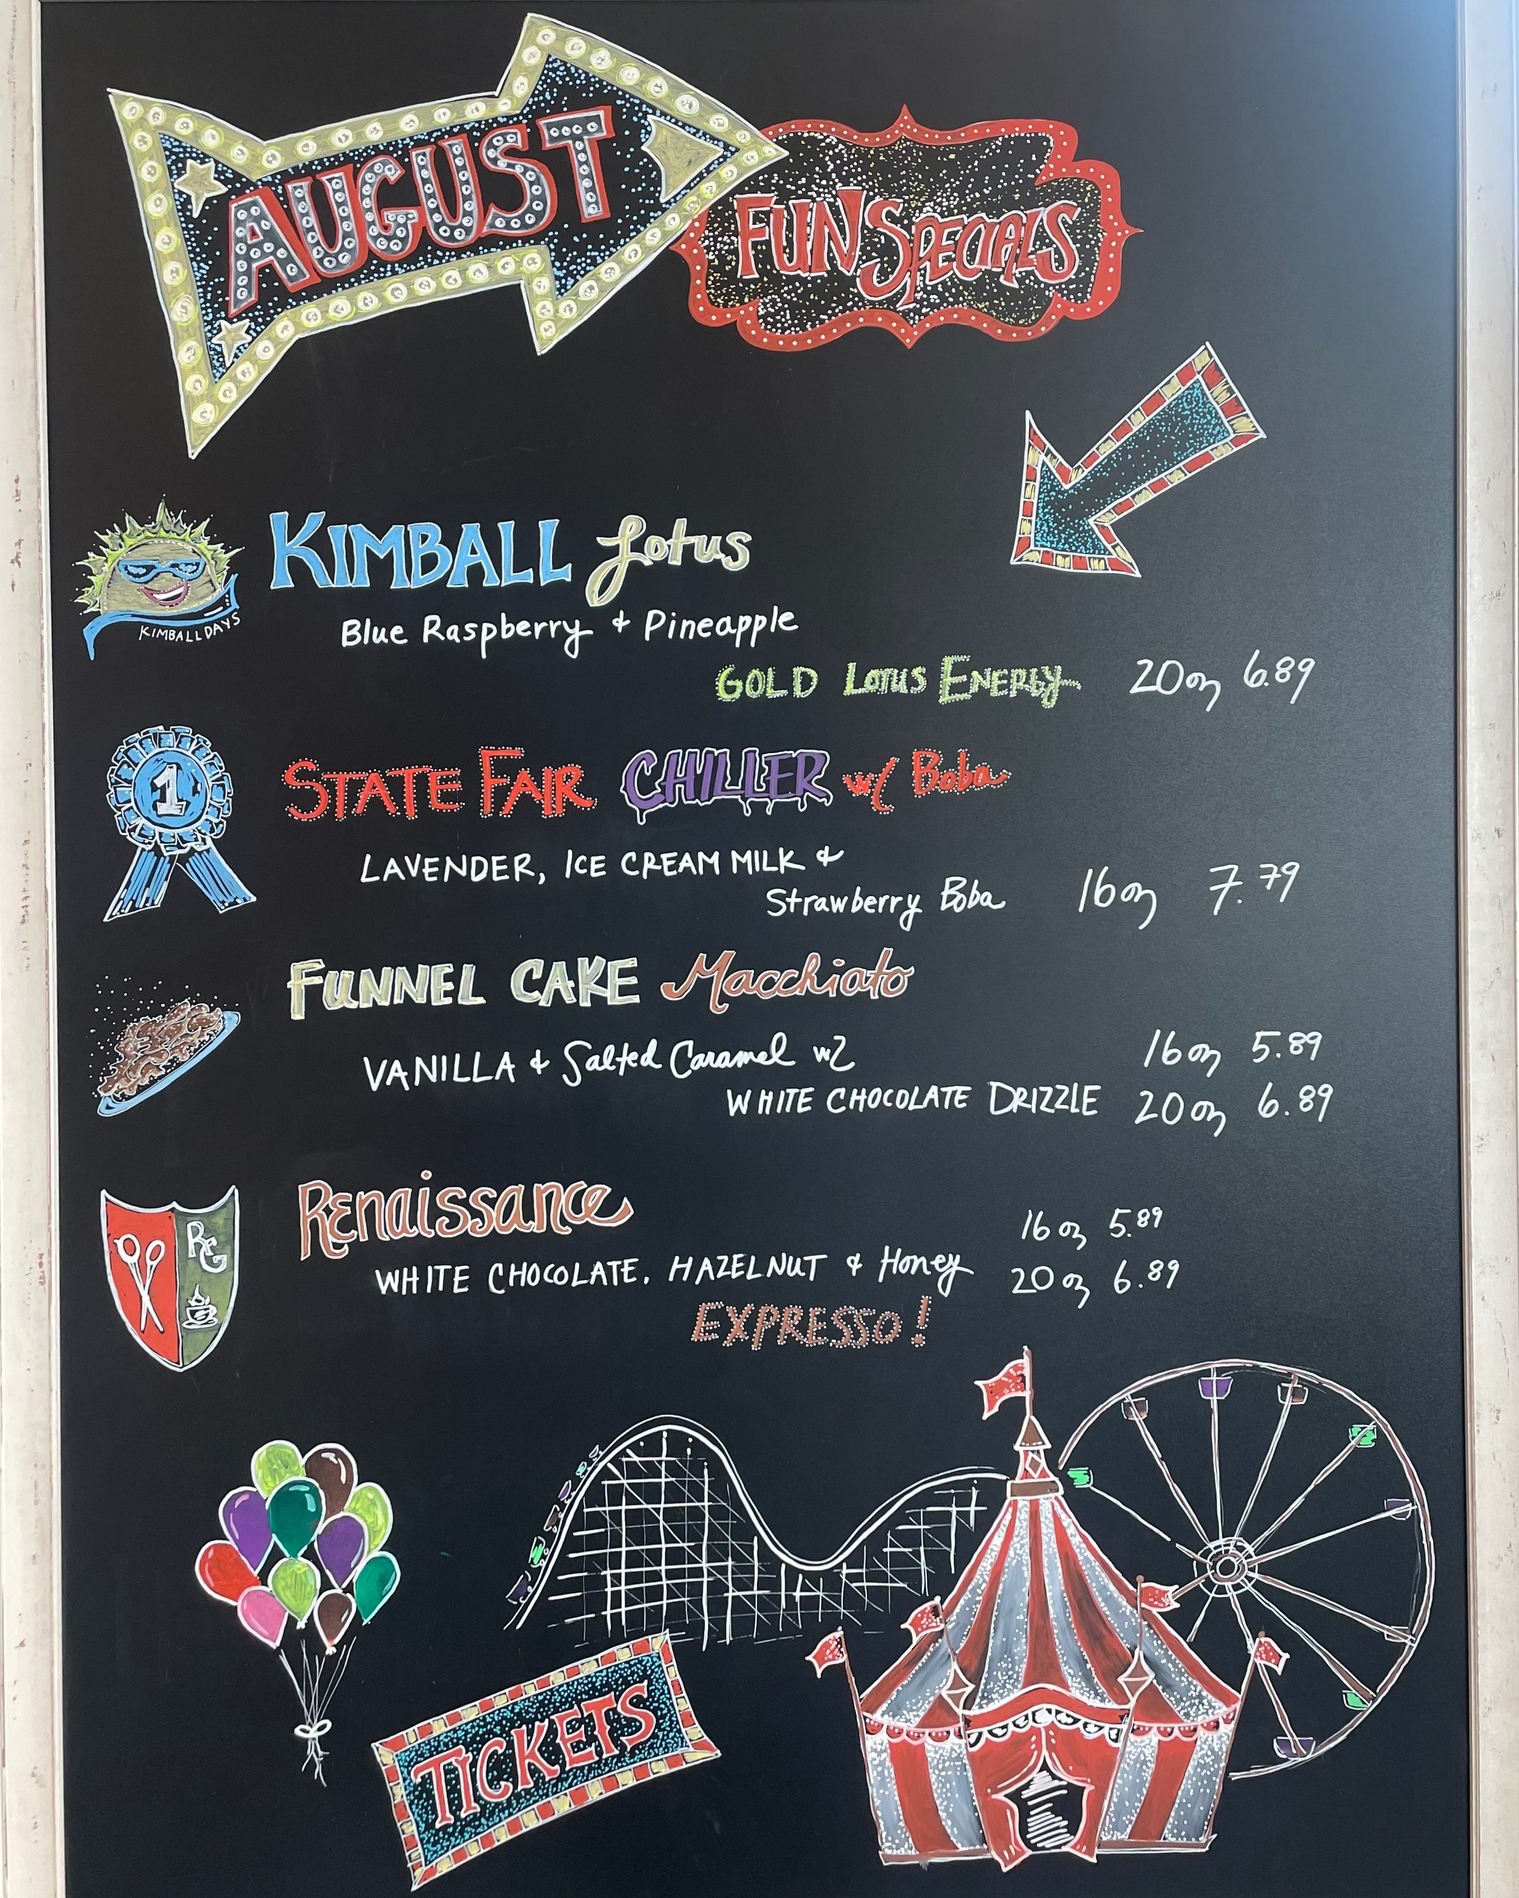 AUGUST
FUN SPECIALS
KIMBALL Lotus
KIMBALL DAYS
Blue Raspberry & Pineapple
GOLD LOTUS ENERGY 20oz 6.89
1
STATE FAIR CHILLER w/ Boba
LAVENDER, ICE CREAM MILK &
Strawberry Boba 16oz 7.79
FUNNEL CAKE Macchiato
VANILLA & Salted Caramel w/ 16oz 5.89
WHITE CHOCOLATE DRIZZLE 20oz 6.89
RG
Renaissance 16oz 5.89
WHITE CHOCOLATE, HAZELNUT & Honey 20oz 6.89
EXPRESSO!
TICKETS